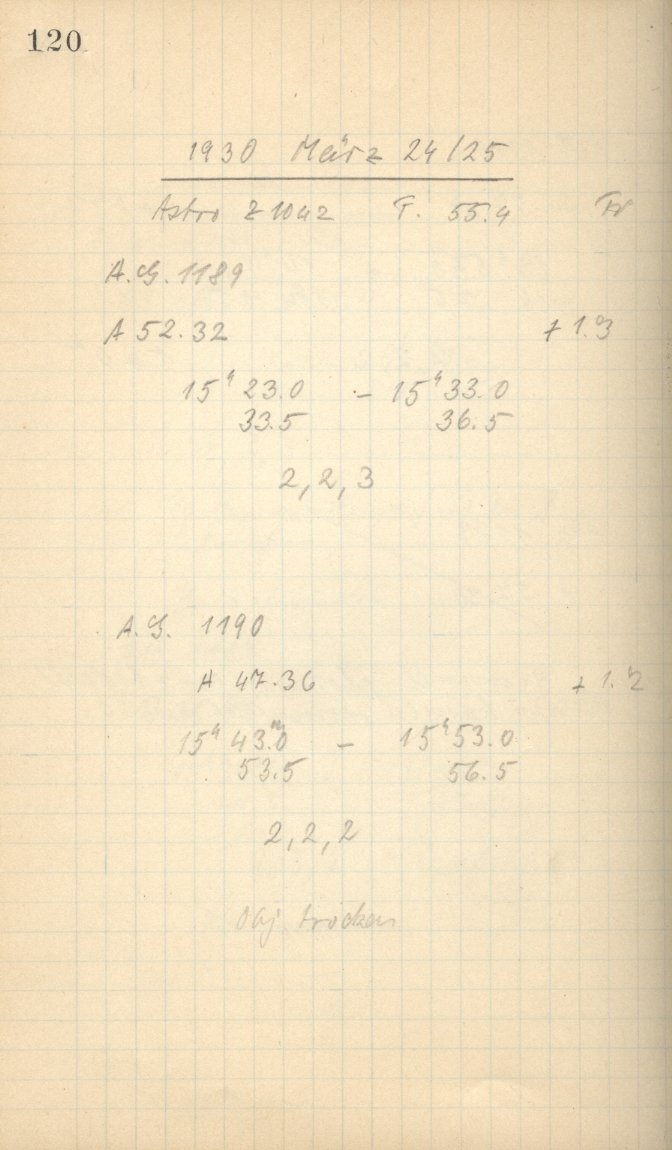 120
1930 März 24/25
Astro Z 1042 T. 55.4 Fr
A.G. 1189
A 52.32 + 1.3
15h 23.0 – 15h 33.0
33.5 36.5
2, 2, 3
A.G. 1190
A 47.36 + 1.2
15h 43.m0 – 15h 53.0
53.5 56.5
2, 2, 2
Obj trocken